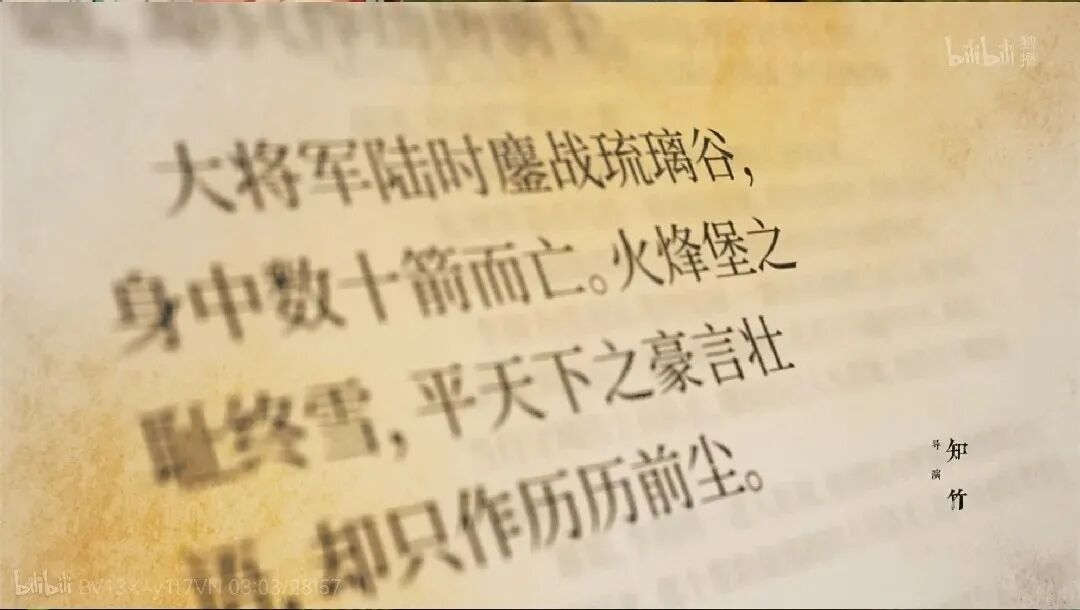 bilibili 独播
大将军陆时鏖战琉璃谷，
身中数十箭而亡。火烽堡之
耻终雪，平天下之豪言壮
语，却只作历历前尘。
导演
知竹
bilibili 03:03/28:57